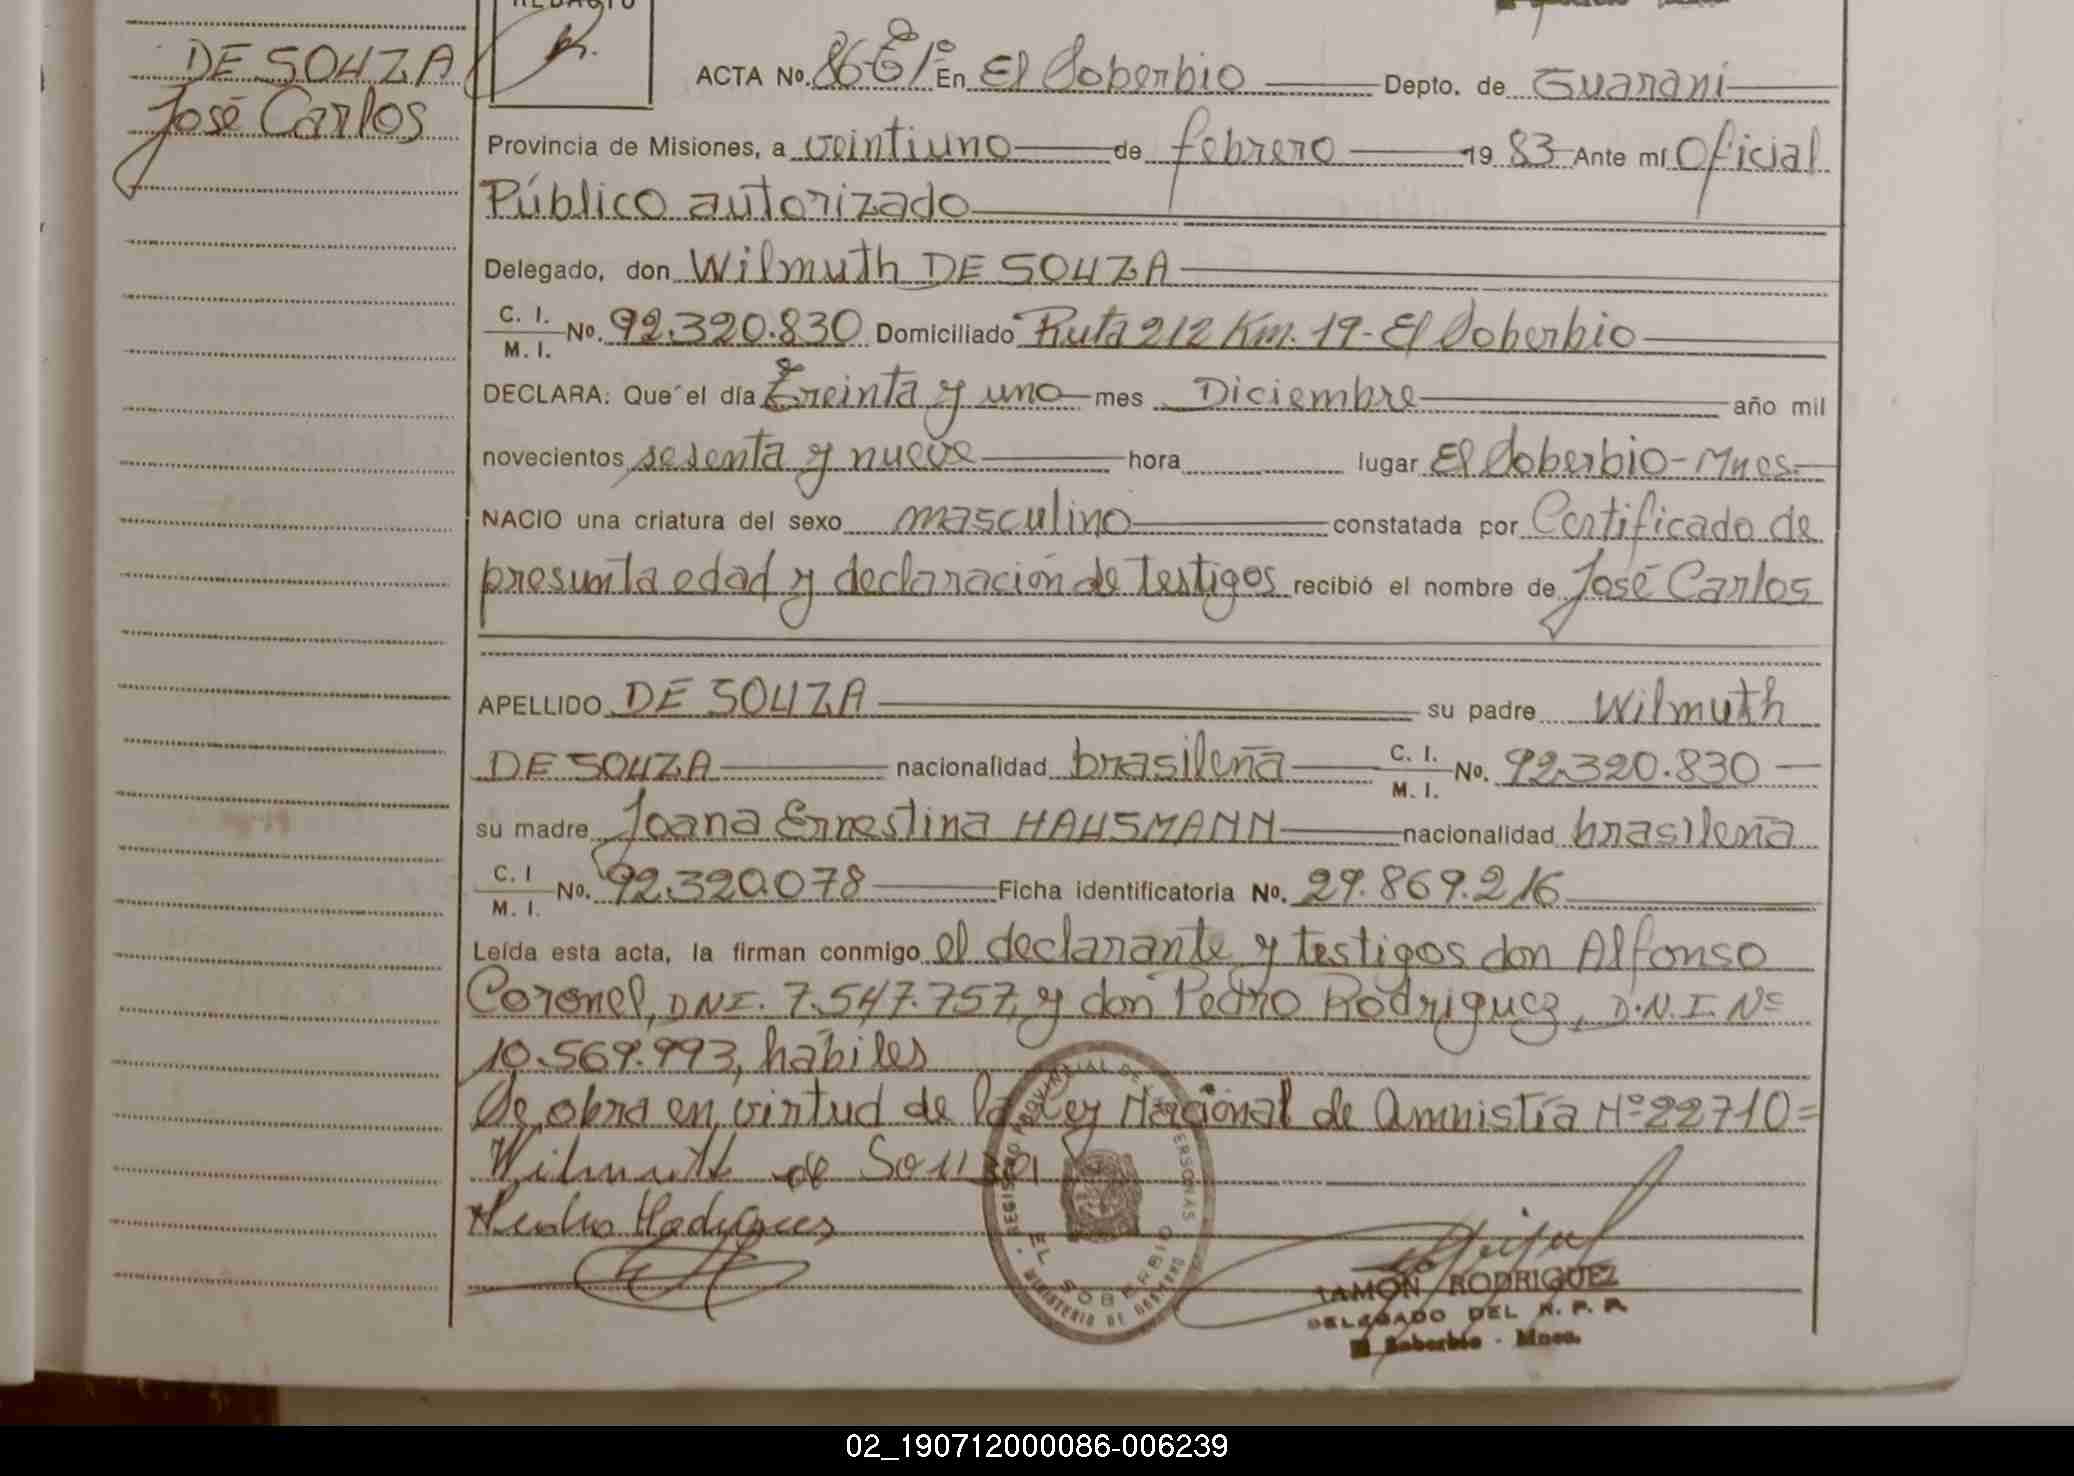 REDACTO
DE SOUZA
José Carlos
ACTA No. 86 En El Soberbio Depto. de Guaraní
Provincia de Misiones, a veintiuno de febrero 19 83 Ante mí Oficial
Público autorizado
Delegado, don Wilmuth DE SOUZA
C. I.
M. I. No. 92.320.830 Domiciliado Ruta 212 Km. 19 - El Soberbio
DECLARA: Que el día treinta y uno mes Diciembre año mil
novecientos sesenta y nueve hora lugar El Soberbio - Mnes.
NACIO una criatura del sexo masculino constatada por Certificado de
presunta edad y declaración de testigos recibió el nombre de José Carlos
APELLIDO DE SOUZA su padre Wilmuth
DE SOUZA nacionalidad brasileña C. I. M. I. No. 92.320.830
su madre Joana Ernestina HAUSMANN nacionalidad brasileña
C. I M. I. No. 92.320.078 Ficha identificatoria No. 29.869.216
Leída esta acta, la firman conmigo el declarante y testigos don Alfonso
Coronel, DNI. 7.547.757, y don Pedro Rodriguez, D.N.I. Nº
10.569.993, hábiles
Se obra en virtud de la Ley Nacional de Amnistía Nº 22710=
Wilmuth de Souza
Pedro Rodrigues
REGISTRO PROVINCIAL DE LAS PERSONAS
EL SOBERBIO
MINISTERIO DE GOBIERNO
RAMON RODRIGUEZ
DELEGADO DEL R. P. P.
El Soberbio - Mnes.
02_190712000086-006239